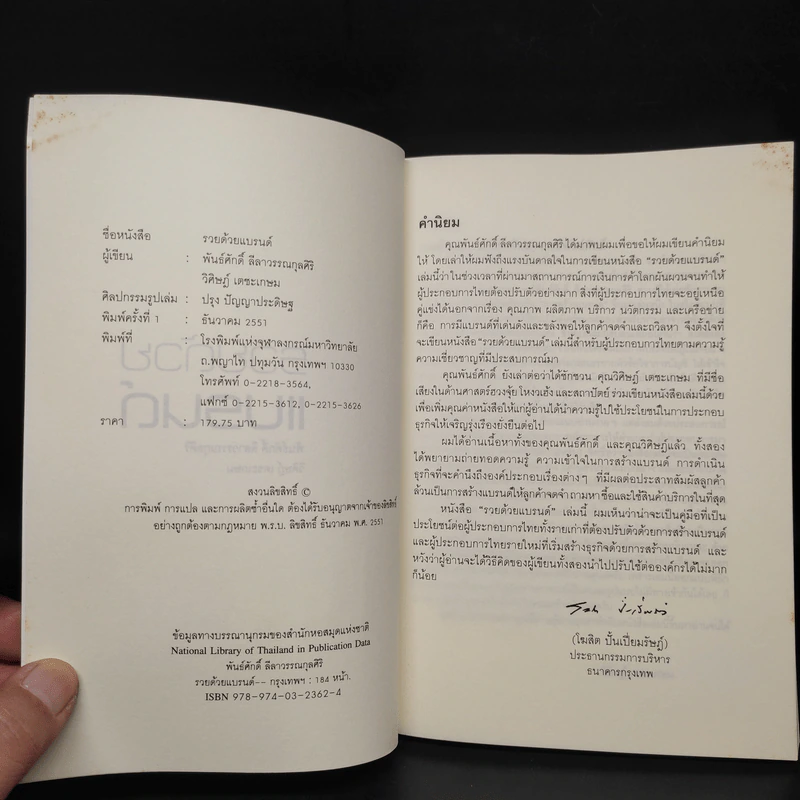 ชื่อหนังสือ รวยด้วยแบรนด์
ผู้เขียน : พันธ์ศักดิ์ ลีลาวรรณกุลศิริ
วิศิษฎ์ เตชะเกษม
ศิลปกรรมรูปเล่ม : ปรุง ปัญญาประดิษฐ
พิมพ์ครั้งที่ 1 : ธันวาคม 2551
พิมพ์ที่ : โรงพิมพ์แห่งจุฬาลงกรณ์มหาวิทยาลัย
ถ.พญาไท ปทุมวัน กรุงเทพฯ 10330
โทรศัพท์ 0-2218-3564,
แฟกซ์ 0-2215-3612, 0-2215-3626
ราคา : 179.75 บาท
สงวนลิขสิทธิ์ ©
การพิมพ์ การแปล และการผลิตซ้ำอื่นใด ต้องได้รับอนุญาตจากเจ้าของลิขสิทธิ์
อย่างถูกต้องตามกฎหมาย พ.ร.บ. ลิขสิทธิ์ ธันวาคม พ.ศ. 2551
ข้อมูลทางบรรณานุกรมของสำนักหอสมุดแห่งชาติ
National Library of Thailand in Publication Data
พันธ์ศักดิ์ ลีลาวรรณกุลศิริ
รวยด้วยแบรนด์-- กรุงเทพฯ : 184 หน้า.
ISBN 978-974-03-2362-4
คำนิยม
คุณพันธ์ศักดิ์ ลีลาวรรณกุลศิริ ได้มาพบผมเพื่อขอให้ผมเขียนคำนิยม
ให้ โดยเล่าให้ผมฟังถึงแรงบันดาลใจในการเขียนหนังสือ “รวยด้วยแบรนด์”
เล่มนี้ว่าในช่วงเวลาที่ผ่านมาสถานการณ์การเงินการค้าโลกผันผวนจนทำให้
ผู้ประกอบการไทยต้องปรับตัวอย่างมาก สิ่งที่ผู้ประกอบการไทยจะอยู่เหนือ
คู่แข่งได้นอกจากเรื่อง คุณภาพ ผลิตภาพ บริการ นวัตกรรม และเครือข่าย
ก็คือ การมีแบรนด์ที่เด่นดังและขลังพอให้ลูกค้าจดจำและถวิลหา จึงตั้งใจที่
จะเขียนหนังสือ “รวยด้วยแบรนด์” เล่มนี้สำหรับผู้ประกอบการไทยตามความรู้
ความเชี่ยวชาญที่มีประสบการณ์มา
คุณพันธ์ศักดิ์ ยังเล่าต่อว่าได้ชักชวน คุณวิศิษฎ์ เตชะเกษม ที่มีชื่อ
เสียงในด้านศาสตร์ฮวงจุ้ย โหงวเฮ้ง และสถาปัตย์ ร่วมเขียนหนังสือเล่มนี้ด้วย
เพื่อเพิ่มคุณค่าหนังสือให้แก่ผู้อ่านได้นำความรู้ไปใช้ประโยชน์ในการประกอบ
ธุรกิจให้เจริญรุ่งเรืองยั่งยืนต่อไป
ผมได้อ่านเนื้อหาทั้งของคุณพันธ์ศักดิ์ และคุณวิศิษฎ์แล้ว ทั้งสอง
ได้พยายามถ่ายทอดความรู้ ความเข้าใจในการสร้างแบรนด์ การดำเนิน
ธุรกิจที่จะคำนึงถึงองค์ประกอบเรื่องต่างๆ ที่มีผลต่อประสาทสัมผัสลูกค้า
ล้วนเป็นการสร้างแบรนด์ให้ลูกค้าจดจำ ถามหา ซื้อและใช้สินค้าบริการในที่สุด
หนังสือ “รวยด้วยแบรนด์” เล่มนี้ ผมเห็นว่าน่าจะเป็นคู่มือที่เป็น
ประโยชน์ต่อผู้ประกอบการไทยทั้งรายเก่าที่ต้องปรับตัวด้วยการสร้างแบรนด์
และผู้ประกอบการไทยรายใหม่ที่เริ่มสร้างธุรกิจด้วยการสร้างแบรนด์ และ
หวังว่าผู้อ่านจะได้วิธีคิดของผู้เขียนทั้งสองนำไปปรับใช้ต่อองค์กรได้ไม่มาก
ก็น้อย
(โฆสิต ปั้นเปี่ยมรัษฎ์)
ประธานกรรมการบริหาร
ธนาคารกรุงเทพ